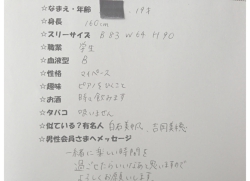 ☆なまえ・年齢 19才
☆身長 160cm
☆スリーサイズ B83 W64 H90
☆職業 学生
☆血液型 B
☆性格 マイペース
☆趣味 ピアノをひくこと
☆お酒 時々飲みます
☆タバコ 吸いません
☆似ている?有名人 白石美帆 吉岡美穂
☆男性会員さまへメッセージ
一緒に楽しい時間を
過ごせたらいいなあと思いますので
よろしくお願いします